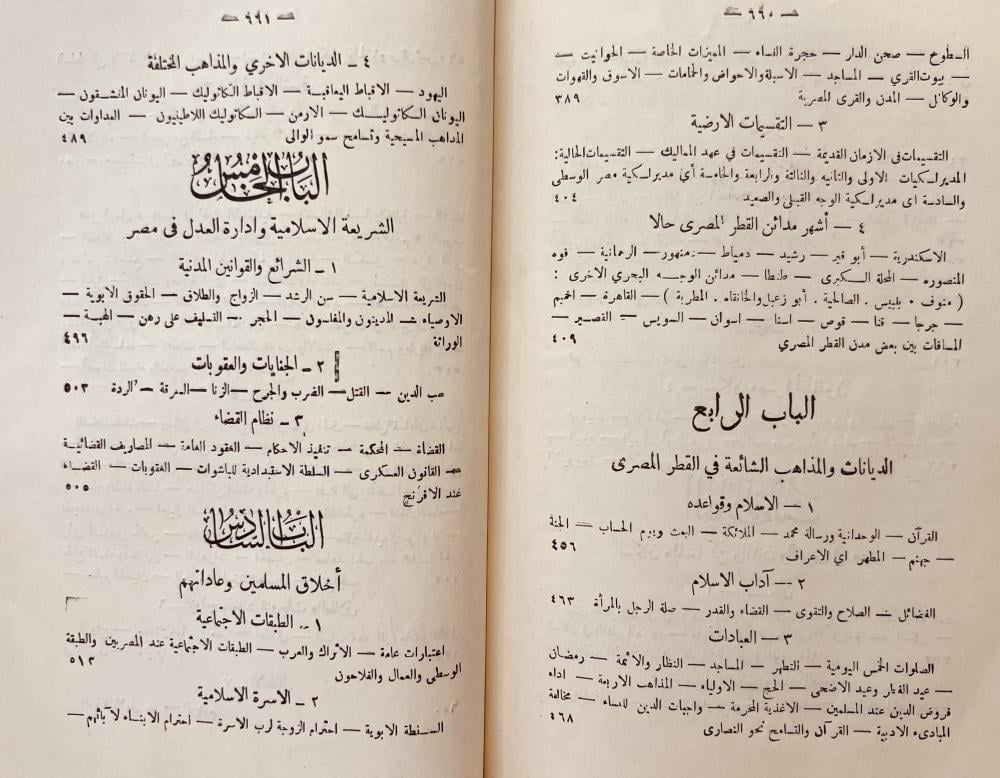 — ٦٩٠ —
السطوح — صحن الدار — حجرة النساء — الميزات الخاصة — الحوانيت —
— بيوت القري — المساجد — الاسبلة والاحواض والحمامات — الاسوق والقهوات
والوكائل — المدن والقرى المصرية ٣٨٩
٣ — التقسيمات الارضية
التقسيمات فى الازمان القديمة — التقسيمات في عهد المماليك — التقسيمات الحالية :
المديراسكيات الاولى والثانيه والثالثة والرابعة والخامسة أي مديراسكية مصر الوسطى
والسادسة اى مديراسكية الوجه القبلى والصعيد ٤٠٤
٤ — أشهر مدائن القطر المصرى حالا
الاسكندرية — أبو قير — رشيد — دمياط — دمنهور — الرحمانية — فوه
المنصوره — المحلة الكبرى — طنطا — مدائن الوجه البحري الاخرى :
( منوف . بلبيس . الصالحية . أبو زعبل والخانقاه . المطرية ) — القاهرة — اخميم
— جرجا — قنا — قوص — اسنا — اسوان — السويس — القصير —
المسافات بين بعض مدن القطر المصري ٤٠٩
الباب الرابع
الديانات والمذاهب الشائعة في القطر المصرى
١ — الاسلام وقواعده
القرآن — الوحدانية ورسالة محمد — الملائكة — البعث ويوم الحساب — الجنة
— جهنم — المطهر اي الاعراف ٤٥٦
٢ — آداب الاسلام
الفضائل — الصلاح والتقوى — القضاء والقدر — صلة الرجل بالمرأة ٤٦٣
٣ — العبادات
الصلوات الخمس اليومية — التطهر — المساجد — النظار والائمة — رمضان
— عيد الفطر وعيد الاضحى — الحج — الاولياء — المذاهب الاربعة — اداء
فروض الدين عند المسلمين — الاغذية المحرمة — واجبات الدين للنساء — مخالفة
المبادىء الادبية — القرآن والتسامح نحو النصارى ٤٦٨
— ٦٩١ —
٤ — الديانات الاخري والمذاهب المختلفة
اليهود — الاقباط اليعاقبة — الاقباط الكاثوليك — اليونان المنشقون —
اليونان الكاثوليك — الارمن — الكاثوليك اللاطينيون — العداوات بين
المذاهب المسيحية وتسامح سمو الوالى ٤٨٩
الباب الخامس
الشريعة الاسلامية وادارة العدل فى مصر
١ — الشرائع والقوانين المدنية
الشريعة الاسلامية — سن الرشد — الزواج والطلاق — الحقوق الابوية —
الاوصياء — المدينون والمفلسون — الحجر — التسليف على رهن — الهبة —
الوراثة ٤٩٦
٢ — الجنايات والعقوبات
سب الدين — القتل — الضرب والجرح — الزنا — السرقة — الردة ٥٠٣
٣ — نظام القضاء
القضاة — المحكمة — تنفيذ الاحكام — العقود العامة — المصاريف القضائية
— القانون العسكرى — السلطة الاستبدادية للباشوات — العقوبات — القضاء
عند الافرنج ٥٠٥
الباب السادس
أخلاق المسلمين وعاداتهم
١ — الطبقات الاجتماعية
اعتبارات عامة — الاتراك والعرب — الطبقات الاجتماعية عند المصريين والطبقة
الوسطى والعمال والفلاحون ٥١٢
٢ — الاسرة الاسلامية
السلطة الابوية — احترام الزوجة لرب الاسرة — احترام الابناء لآبائهم —